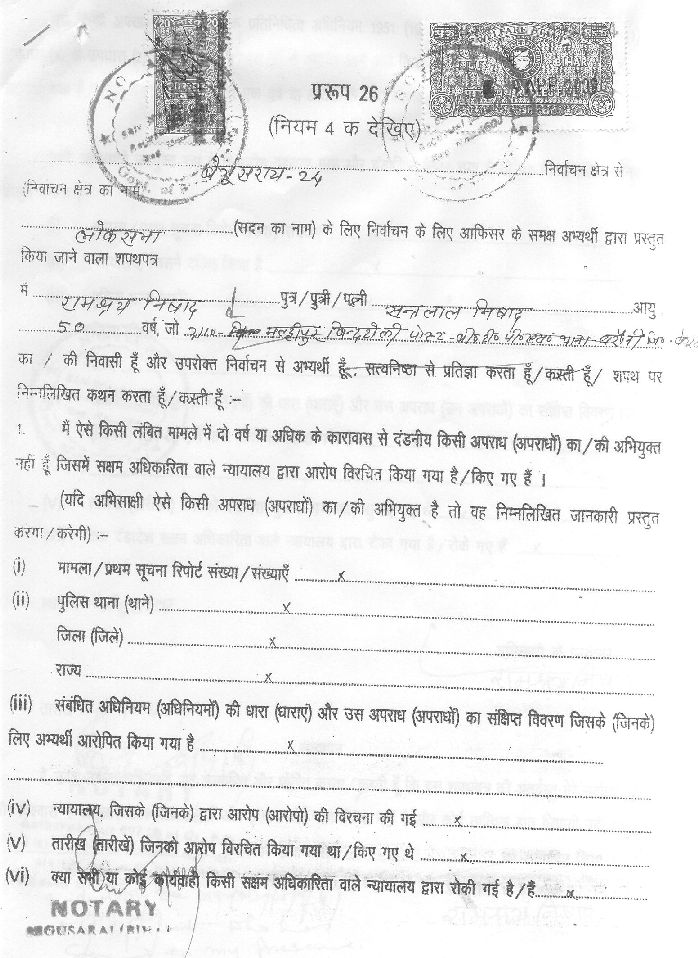 प्ररूप 26
(नियम 4 क देखिए)
बेगूसराय-24 निर्वाचन क्षेत्र से
(निर्वाचन क्षेत्र का नाम)
लोकसभा (सदन का नाम) के लिए निर्वाचन के लिए आफिसर के समक्ष अभ्यर्थी द्वारा प्रस्तुत
किया जाने वाला शपथपत्र
मैं निषाद पुत्र/पुत्री/पत्नी सन्तलाल निषाद आयु
50 वर्ष, जो मल्हीपुर पोस्ट थाना
का / की निवासी हूँ और उपरोक्त निर्वाचन से अभ्यर्थी हूँ, सत्यनिष्ठा से प्रतिज्ञा करता हूँ/करती हूँ/ शपथ पर
निम्नलिखित कथन करता हूँ/करती हूँ :–
1. मैं ऐसे किसी लंबित मामले में दो वर्ष या अधिक के कारावास से दंडनीय किसी अपराध (अपराधों) का/की अभियुक्त
नहीं हूँ जिसमें सक्षम अधिकारिता वाले न्यायालय द्वारा आरोप विरचित किया गया है/किए गए हैं ।
(यदि अभिसाक्षी ऐसे किसी अपराध (अपराधों) का/की अभियुक्त है तो वह निम्नलिखित जानकारी प्रस्तुत
करेगा/करेगी) :–
(i) मामला/प्रथम सूचना रिपोर्ट संख्या/संख्याएँ x
(ii) पुलिस थाना (थाने) x
जिला (जिले) x
राज्य x
(iii) संबंधित अधिनियम (अधिनियमों) की धारा (धाराएं) और उस अपराध (अपराधों) का संक्षिप्त विवरण जिसके (जिनके)
लिए अभ्यर्थी आरोपित किया गया है x
(iv) न्यायालय, जिसके (जिनके) द्वारा आरोप (आरोपो) की विरचना की गई x
(v) तारीख (तारीखें) जिनको आरोप विरचित किया गया था/किए गए थे x
(vi) क्या सभी या कोई कार्यवाही किसी सक्षम अधिकारिता वाले न्यायालय द्वारा रोकी गई है/हैं x
NOTARY
BEGUSARAI